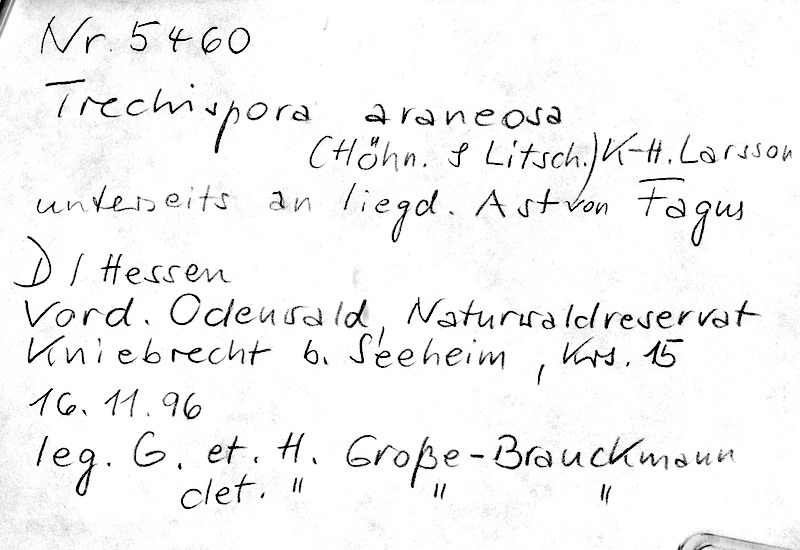 Nr. 5460
Trechispora araneosa
(Höhn. & Litsch.) K-H. Larsson
unterseits an liegd. Ast von Fagus
D / Hessen
Vord. Odenwald, Naturwaldreservat
Kniebrecht b. Seeheim, Krs. 15
16. 11. 96
leg. G. et. H. Große-Brauckmann
det. " " "